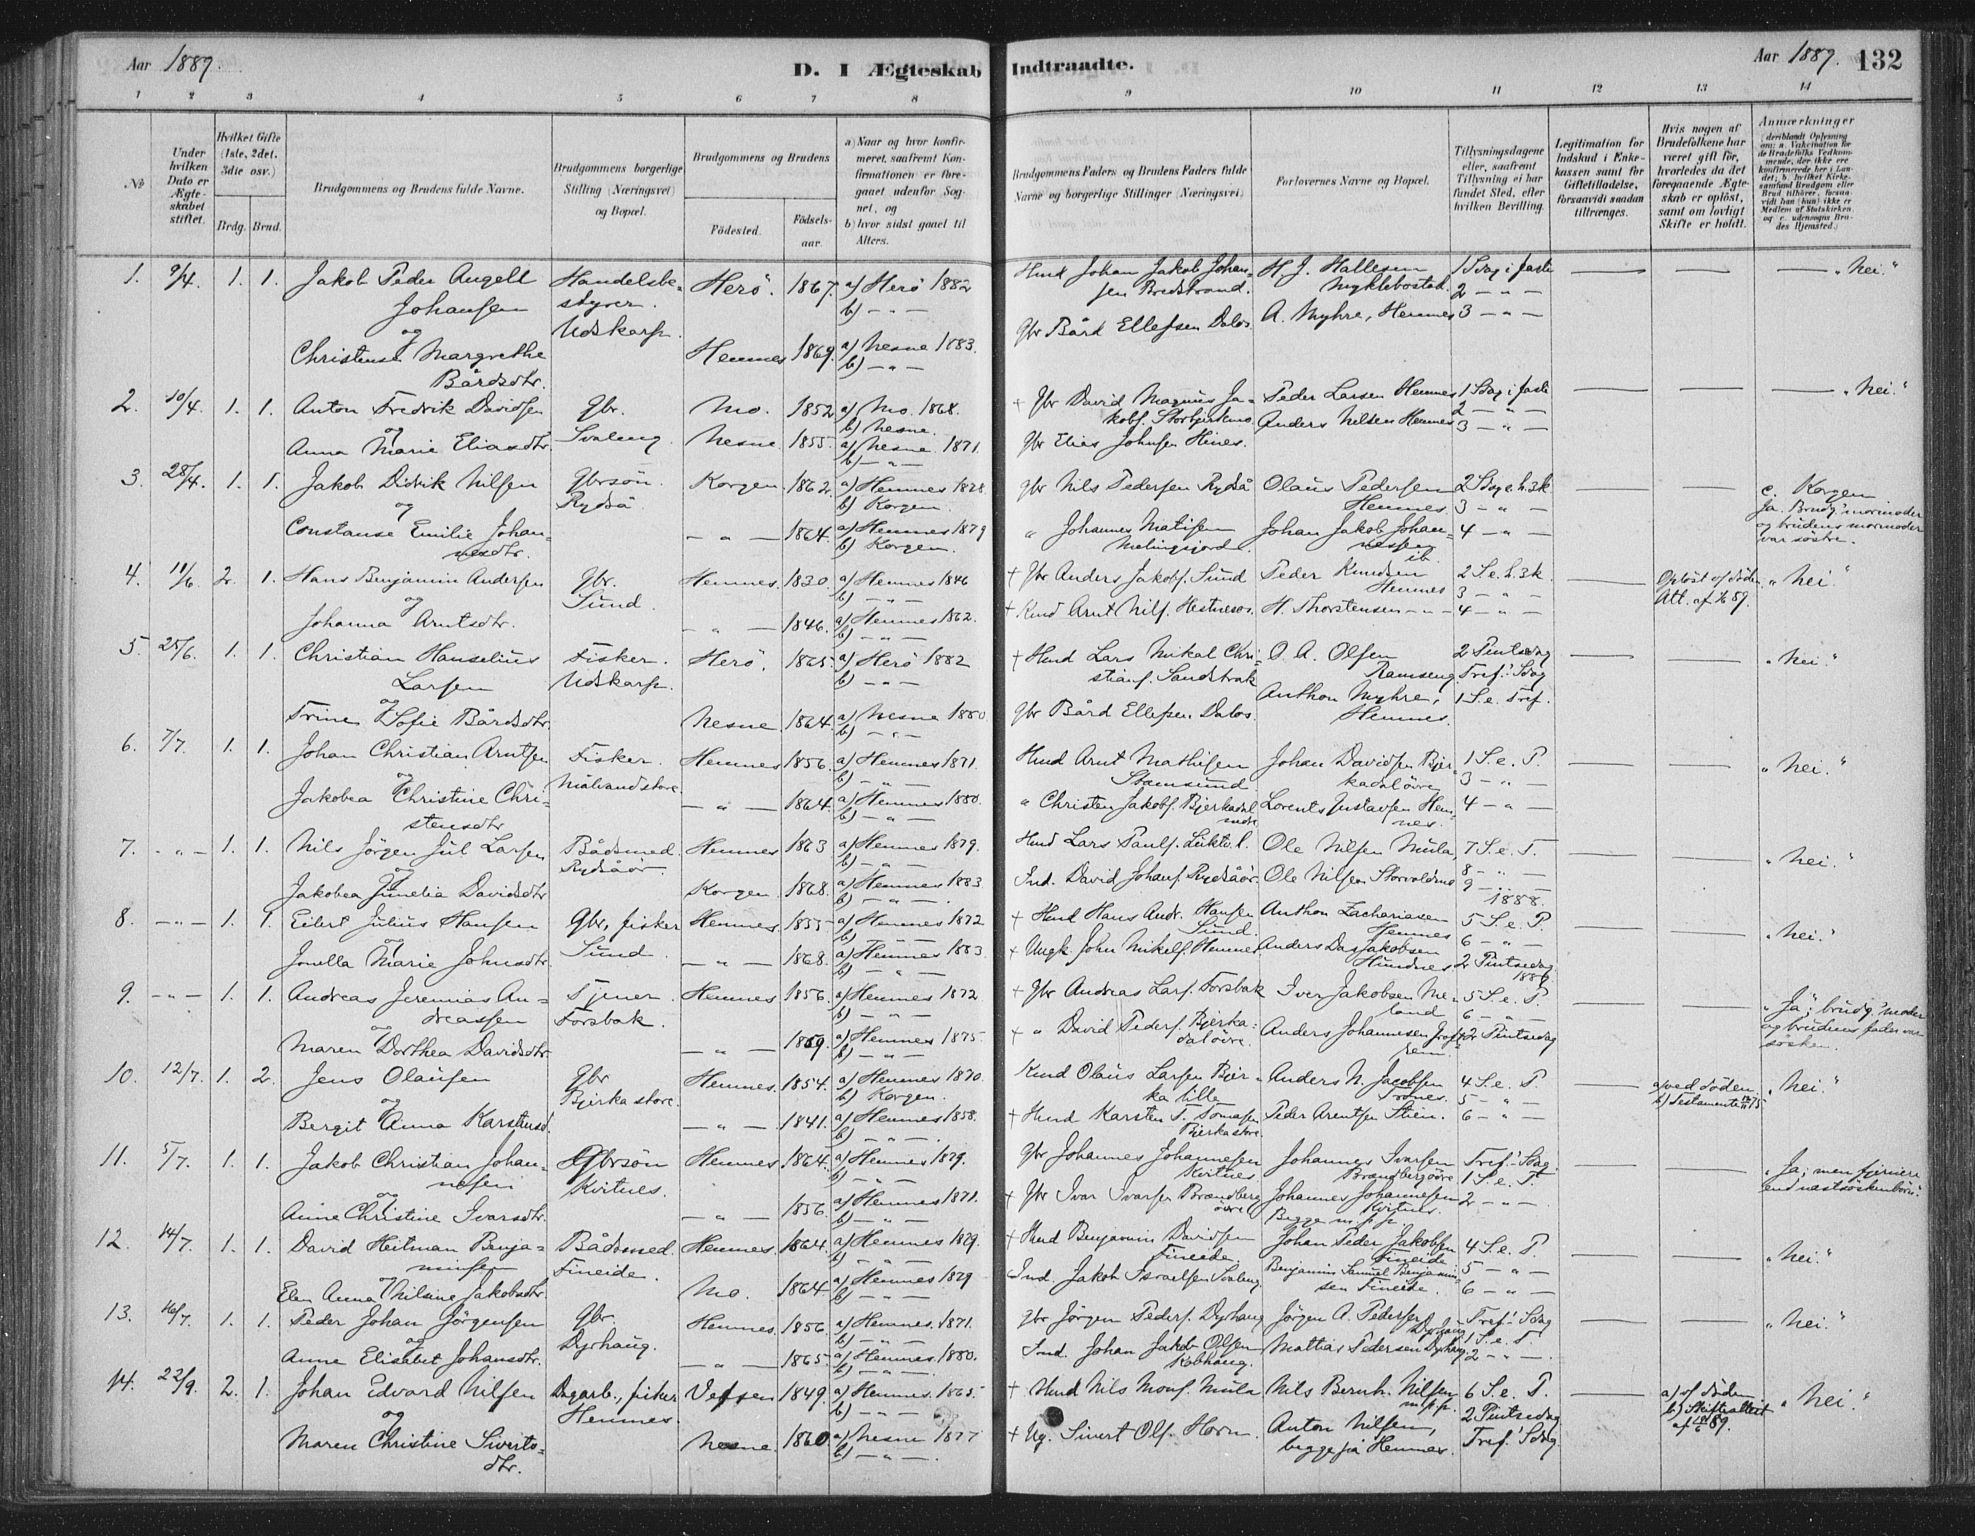 Aar 1889.
D. I Ægteskab Indtraadte.
Aar 1889. 132
1 2 3 4 5 6 7 8 9 10 11 12 13 14
No
Under hvilken Dato er Ægteskabet stiftet.
Hvilket Gifte (1ste, 2det, 3die osv.)
Brdg. Brud.
Brudgommens og Brudens fulde Navne.
Brudgommens borgerlige Stilling (Næringsvei) og Bopæl.
Brudgommens og Brudens
Födested. Födselsaar.
a) Naar og hvor konfirmeret, saafremt Konfirmationen er foregaaet udenfor Sognet, og
b) hvor sidst gaaet til Alters.
Brudgommens Faders og Brudens Faders fulde Navne og borgerlige Stillinger (Næringsvei)
Forlovernes Navne og Bopæl.
Tillysningsdagene eller, saafremt Tillysning ei har fundet Sted, efter hvilken Bevilling.
Legitimation for Indskud i Enkekassen samt for Giftetilladelse, forsaavidt saadan tiltrænges.
Hvis nogen af Brudefolkene har været gift för, hvorledes da det foregaaende Ægteskab er oplöst, samt om lovligt Skifte er holdt.
Anmærkninger
1. 9/4. 1. 1. Jakob Peder Angell Johansen Handelsbestyrer Udskarp. Herö. 1867. a) Herö 1882 b) — " —
og
Christense Margrethe Bårdsdtr. Hemnes 1869. a) Nesne 1883. b) — " —
Hmd Johan Jakob Johansen Bredstrand. H. J. Hallesen Myklebostad. 1 Sdag i faste 2 — " — "Nei."
Gbr Bård Ellefsen Dalos. A. Myhre, Hemnes 3 — " —
2. 10/4. 1. 1. Anton Fredrik Davidsen Gbr. Svaleng. Mo. 1852 a) Mo. 1868. b) Nesne.
og
Anna Marie Eliasdtr. Nesne 1855. a) Nesne 1871. b) — " —
+ Gbr David Magnus Jakobs. Storbjerkmo Peder Larsen Hemnes 1 Sdag i faste 2 — " — "Nei."
Gbr Elias Johnsen Hines. Anders Nilsen Hemnes 3 — " —
3. 28/4. 1. 1. Jakob Didrik Nilsen Gbrsön. Rydså Korgen 1862. a) Hemnes 1878 b) Korgen.
og
Constanse Emilie Johannesdtr. — " — 1864. a) Hemnes 1879 b) Korgen.
Gbr Nils Pedersen Rydså Olaus Pedersen Hemnes. 2 Sdag e. h. 3k 3 — " —
" Johannes Matisen Melingsjord. Johan Jakob Johannessen ib. 4 — " —
c. Korgen Ja. Brudg.' mormoder og brudens mormoder var söstre.
4. 11/6 2. 1. Hans Benjamin Andersen Gbr. Sund. Hemnes. 1830. a) Hemnes 1846 b) — " —
og
Johanna Arntsdtr. — " — 1846. a) Hemnes 1862. b) — " —
+ Gbr Anders Jakobs. Sund Peder Knudsen Hemnes 2 S. e. h. 3k. 3 — " — Oplöst af döden. "Nei."
+ Kmd Arnt Nils. Hestnesos. H. Thorstensen — " — 4 — " —
5. 25/6. 1. 1. Christian Hanselius Larsen Fisker. Udskarp. Herö. 1865. a) Herö 1882 b) — " —
og
Trine Sofie Bårdsdtr. Nesne 1864. a) Nesne 1880. b) — " —
+ Hmd Lars Mikal Christians. Sandstrak O. A. Olsen Ramseng. 2 Pintsedag Tref.' Sdag "Nei."
Gbr Bård Ellefsen Dalos. Anthon Myhre, Hemnes. 1 S. e. Tref.
6. 7/7. 1. 1. Johan Christian Arntsen Fisker. Målvandstore. Hemnes 1856. a) Hemnes 1871. b) — " —
og
Jakobea Christine Christensdtr — " — 1864. a) Hemnes 1880. b) — " —
Hmd Arnt Mathisen Stamsund Johan Davidsen Bjerkadaløvre 1 S. e. P. 3 — " — "Nei."
" Christen Jakobs. Bjerkadal nedre Lorents Gustavsen Hemnes. 4 — " —
7. — " — 1. 1. Nils Jörgen Jul Larsen Bådsmed. Rydsåör. Hemnes 1863 a) Hemnes 1879. b) — " —
og
Jakobea Junelia Davidsdtr Korgen 1868. a) Hemnes 1883 b) — " —
Hmd Lars Pauls. Luktv. l. Ole Nilsen Mula, 7 S. e. T. 8 — " — "Nei."
Ind. David Johans. Rydsåör. Ole Nilsen Storvoldmo 9 — " — 1888.
8. — " — 1. 1. Eilert Julius Hansen Gbr., fisker Sund. Hemnes 1855 a) Hemnes 1872 b) — " —
og
Jonella Marie Johnsdtr. — " — 1868. a) Hemnes 1883 b) — " —
+ Hmd Hans Andr. Hansen Sund. Anthon Zachariasen Hemnes 5 S. e. P. 6 — " — "Nei."
+ Ungk John Mikels. Hemnes Anders Das Jakobsen Hundnes 2 Pintsedag 1889
9. — " — 1. 1. Andreas Jeremias Andreassen Tjener Forsbak. Hemnes 1856. a) Hemnes 1872 b) — " —
og
Maren Dorthea Davidsdtr — " — 1859. a) Hemnes 1875. b) — " —
+ Gbr Andreas Lars. Forsbak Iver Jakobsen Meland 5 S. e. P 6 — " —
+ " David Peders. Bjerkadalöire. Anders Johannesen 2 Pintsedag
"Ja"; brudg.' moder og brudens fader var søsken.
10. 12/7. 1. 2. Jens Olausen Gbr Bjerka store. Hemnes. 1854. a) Hemnes 1870. b) Korgen.
og
Bergit Anna Karstensd. — " — 1841. a) Hemnes 1858. b) — " —
Kmd Olaus Larsen Bjerka lille Anders N. Jacobsen 4 S. e. P. 5 — " — a) ved döden b) Testamente "Nei."
+ Hmd Karsten T. Tomasen Bjerka store. Peder Arentsen Stien. 6 — " —
11. 5/7. 1. 1. Jakob Christian Johannesen Gbrsön Kvitnes. Hemnes 1864. a) Hemnes 1879. b) — " —
og
Anne Christine Ivarsdtr. — " — 1856. a) Hemnes 1871. b) — " —
Gbr Johannes Johannesen Kvitnes Johannes Ivarsen Brændbergöire Tref.' Sdag. 1 S. e. T.
+ Gbr Ivar Ivarsen Brændberg öire Johannes Johannesen Kvitnes. Begge m. p. p. 2 — " —
"Ja; men fjernere end næstsöskenbörn."
12. 14/7. 1. 1. David Heitman Benjaminsen Bådsmed Fineide. Hemnes. 1864. a) Hemnes 1879. b) — " —
og
Elen Anna Nilsine Jakobsdtr. Mo. 1864 a) Hemnes 1879 b) — " —
+ Hmd Benjamin Davidsen Fineide Johan Peder Jakobsen Fineide 4 S. e. P 5 — " — "Nei."
Ind. Jakob Israelsen Svaleng. Benjamin Samuel Benjaminsen Fineide. 6 — " —
13. 16/7. 1. 1. Peder Johan Jörgensen Gbr. Dyrhaug. Hemnes. 1856. a) Hemnes. 1871. b) — " —
og
Anne Elisabet Johansdtr. — " — 1865. a) Hemnes 1880. b) — " —
Gbr Jörgen Peders. Dyrhaug Jörgen A. Pedersen Dyrhaug Tref.' Sdag 1 S. e. T. "Nei."
Ind. Johan Jakob Olsen Kobhaug. Mathias Pedersen Dyrhaug. 2 — " —
14. 22/9. 2. 1. Johan Edvard Nilsen Dagarb., fisker Hemnes. Vefsen 1849. a) Hemnes. 1865. b) — " —
og
Maren Christine Sivertsdtr. Nesne 1860. a) Nesne 1877 b) — " —
+ Hmd Nils Mons. Mula Nils Bernh. Nilsen m. p. p. 6 S. e. P. 2 Pintsedag a) af döden b) Skifteattest "Nei."
+ Ug. Sivert Ols. Horn. Anton Nilsen, begge på Hemnes. Tref.' Sdag